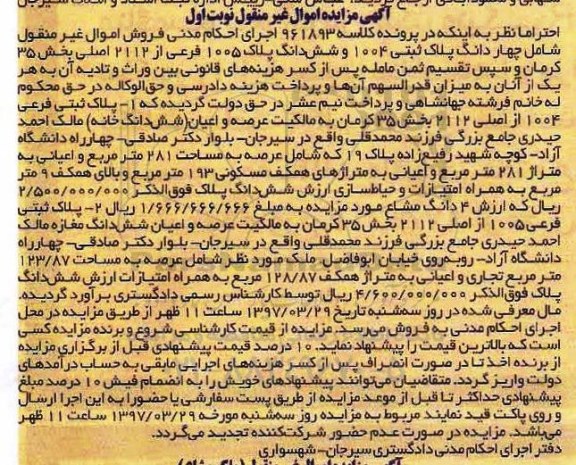 آگهی مزایده اموال غیر منقول نوبت اول
احتراما نظر به اینکه در پرونده کلاسه ۹۶۱۸۹۳ اجرای احکام مدنی فروش اموال غیر منقول
شامل چهار دانگ پلاک ثبتی ۱۰۰۴ و شش‌دانگ پلاک ۱۰۰۵ فرعی از ۲۱۱۲ اصلی بخش ۳۵
کرمان و سپس تقسیم ثمن مامله پس از کسر هزینه‌های قانونی بین وراث و تادیه آن به هر
یک از آنان به میزان قدرالسهم آن‌ها و پرداخت هزینه دادرسی و حق‌الوکاله در حق محکوم
له خانم فرشته جهانشاهی و پرداخت نیم عشر در حق دولت گردیده که ۱- پلاک ثبتی فرعی
۱۰۰۴ از اصلی ۲۱۱۲ بخش ۳۵ کرمان به مالکیت عرصه و اعیان (شش‌دانگ خانه) مالک احمد
حیدری جامع بزرگی فرزند محمدقلی واقع در سیرجان- بلوار دکتر صادقی- چهارراه دانشگاه
آزاد- کوچه شهید رفیع‌زاده پلاک ۱۹ که شامل عرصه به مساحت ۲۸۱ متر مربع و اعیانی به
متراژ ۲۸۱ متر مربع و اعیانی به متراژهای همکف مسکونی ۱۹۳ متر مربع و بالای همکف ۹ متر
مربع به همراه امتیازات و حیاط‌سازی ارزش شش‌دانگ پلاک فوق‌الذکر ۲/۵۰۰/۰۰۰/۰۰۰
ریال که ارزش ۴ دانگ مشاع مورد مزایده به مبلغ ۱/۶۶۶/۶۶۶/۶۶۶ ریال ۲- پلاک ثبتی
فرعی ۱۰۰۵ از اصلی ۲۱۱۲ بخش ۳۵ کرمان به مالکیت عرصه و اعیان شش‌دانگ مغازه مالک
احمد حیدری جامع بزرگی فرزند محمدقلی واقع در سیرجان- بلوار دکتر صادقی- چهارراه
دانشگاه آزاد- روبه‌روی خیابان ابوفاضل. ملک مورد نظر شامل عرصه به مساحت ۱۲۳/۸۷
متر مربع تجاری و اعیانی به متراژ همکف ۱۲۸/۸۷ مربع به همراه امتیازات ارزش شش‌دانگ
پلاک فوق‌الذکر ۴/۶۰۰/۰۰۰/۰۰۰ ریال توسط کارشناس رسمی دادگستری برآورد گردیده.
مال معرفی شده در روز سه‌شنبه تاریخ ۱۳۹۷/۰۳/۲۹ ساعت ۱۱ ظهر از طریق مزایده در محل
اجرای احکام مدنی به فروش می‌رسد. مزایده از قیمت کارشناسی شروع و برنده مزایده کسی
است که بالاترین قیمت را پیشنهاد نماید. ۱۰ درصد قیمت پیشنهادی قبل از برگزاری مزایده
از برنده اخذ تا در صورت انصراف پس از کسر هزینه‌های اجرایی مابقی به حساب درآمدهای
دولت واریز گردد. متقاضیان می‌توانند پیشنهادهای خویش را به انضمام فیش ۱۰ درصد مبلغ
پیشنهادی حداکثر تا قبل از موعد مزایده از طریق پست سفارشی یا حضورا به این اجرا ارسال
و روی پاکت قید نمایند مربوط به مزایده روز سه‌شنبه مورخه ۱۳۹۷/۰۳/۲۹ ساعت ۱۱ ظهر
می‌باشد. مزایده در صورت عدم حضور شرکت‌کننده تجدید می‌گردد.
دفتر اجرای احکام مدنی دادگستری سیرجان- شهسواری